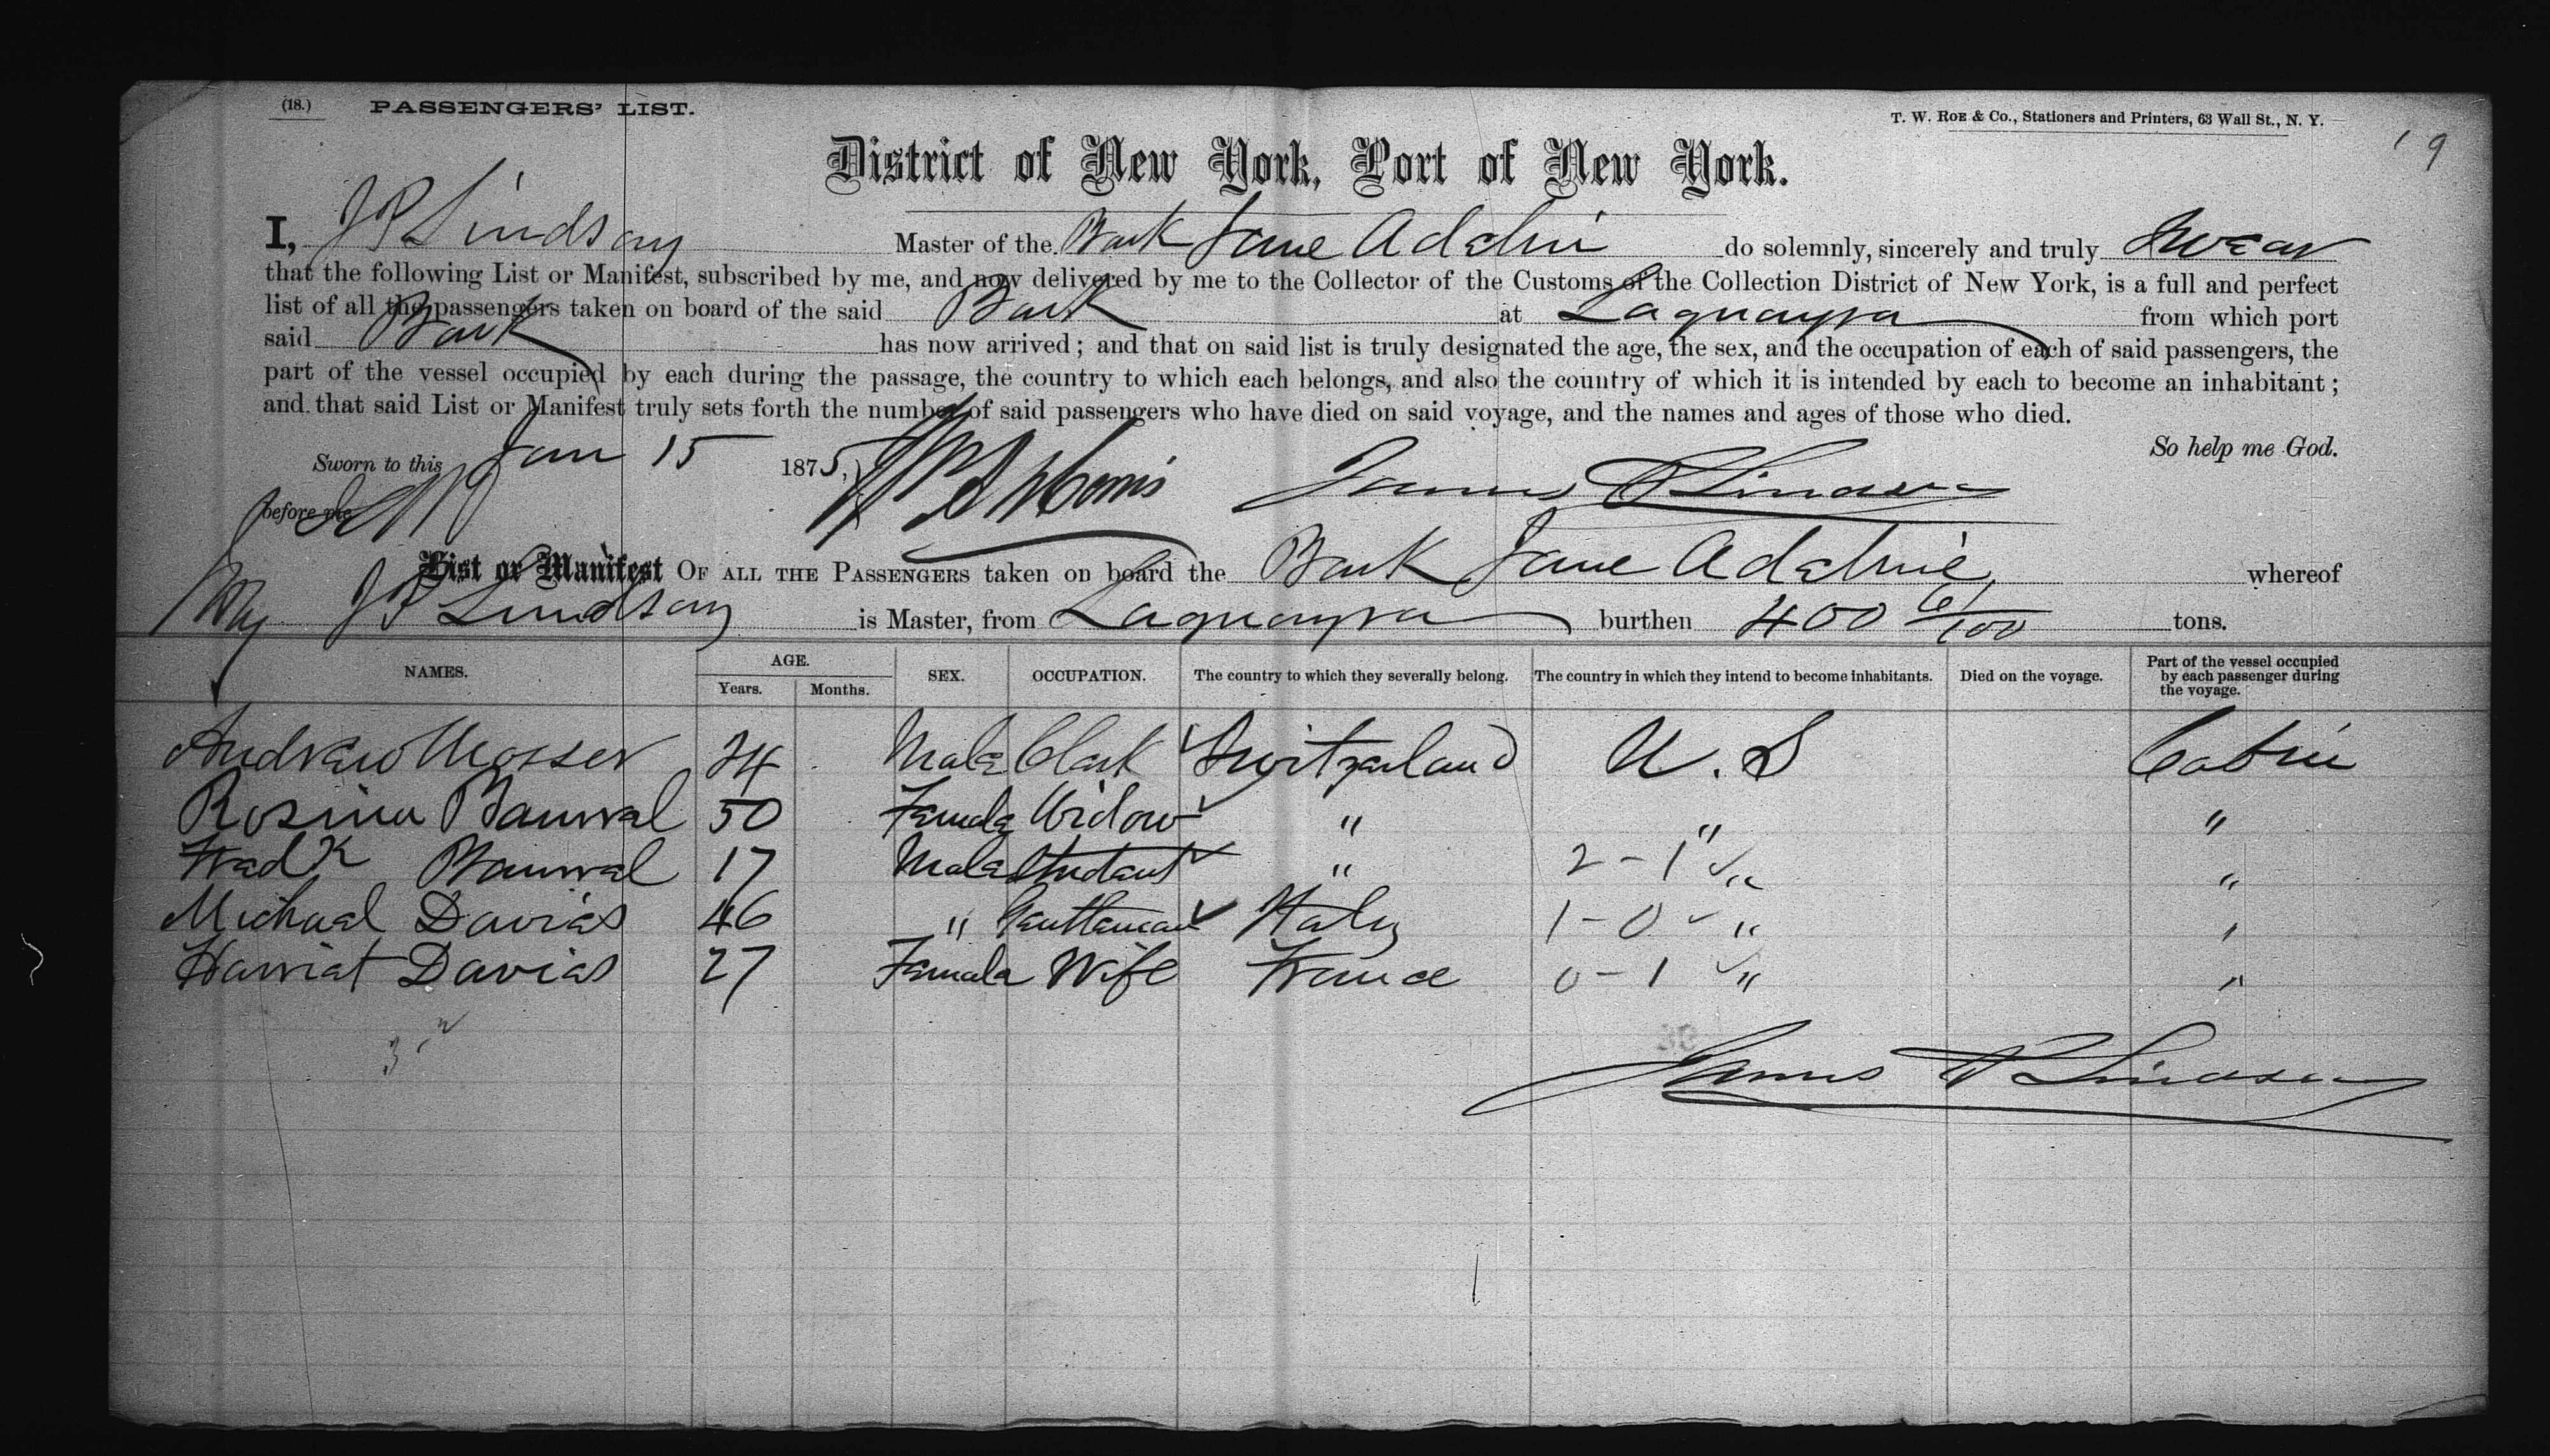 (18.) PASSENGERS' LIST.
T. W. ROE & Co., Stationers and Printers, 63 Wall St., N. Y.
19
District of New York, Port of New York.
I, J P Lindsay Master of the Bark Jane Adeline do solemnly, sincerely and truly Swear
that the following List or Manifest, subscribed by me, and now delivered by me to the Collector of the Customs of the Collection District of New York, is a full and perfect
list of all the passengers taken on board of the said Bark at Laguayra from which port
said Bark has now arrived; and that on said list is truly designated the age, the sex, and the occupation of each of said passengers, the
part of the vessel occupied by each during the passage, the country to which each belongs, and also the country of which it is intended by each to become an inhabitant;
and that said List or Manifest truly sets forth the number of said passengers who have died on said voyage, and the names and ages of those who died.
So help me God.
Sworn to this Jan 15 1875,
James P Lindsay
before me
List or Manifest OF ALL THE PASSENGERS taken on board the Bark Jane Adeline, whereof
J P Lindsay is Master, from Laguayra burthen 400 6/100 tons.
NAMES. AGE. SEX. OCCUPATION. The country to which they severally belong. The country in which they intend to become inhabitants. Died on the voyage. Part of the vessel occupied by each passenger during the voyage.
Years. Months.
Andrew Mosser 24 Male Clerk Switzerland U. S Cabin
Rosina Banwal 50 Female Widow " " "
Fredk Banwal 17 Male Student " 2-1 " "
Michael Davies 46 " Gentleman Italy 1-0 " "
Harriet Davies 27 Female Wife France 0-1 " "
James P Lindsay